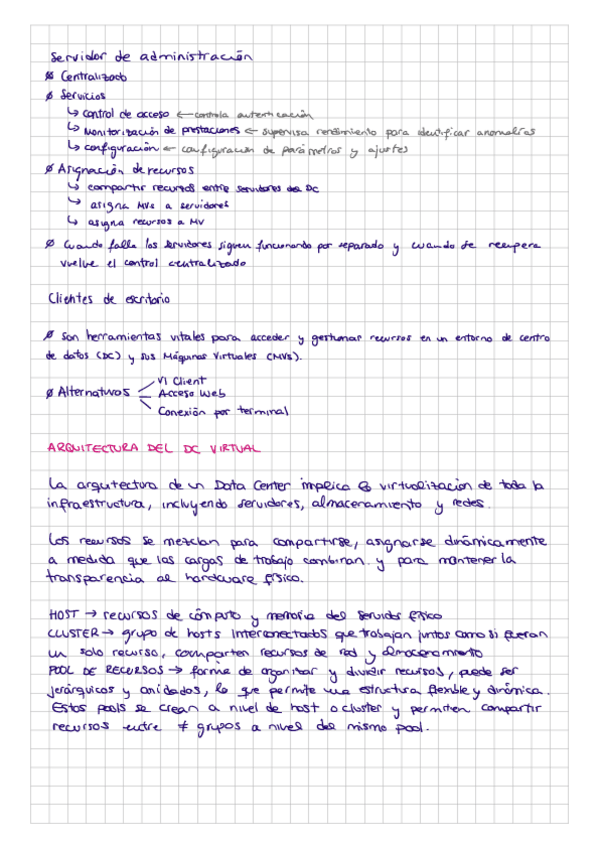 Servidor de administración
ø Centralizado
ø Servicios
↳ control de acceso ← controla autenticación
↳ Monitorización de prestaciones ← supervisa rendimiento para identificar anomalías
↳ configuración ← configuración de parámetros y ajustes
ø Asignación de recursos
↳ compartir recursos entre servidores del DC
↳ asigna MVs a servidores
↳ asigna recursos a MV
ø Cuando falla los servidores siguen funcionando por separado y cuando se recupera
vuelve el control centralizado
Clientes de escritorio
ø Son herramientas vitales para acceder y gestionar recursos en un entorno de centro
de datos (DC) y sus Máquinas Virtuales (MVs).
ø Alternativas
VI Client
Acceso Web
Conexión por terminal
ARQUITECTURA DEL DC VIRTUAL
La arquitectura de un Data Center implica la virtualización de toda la
infraestructura, incluyendo servidores, almacenamiento y redes.
Los recursos se mezclan para compartirse, asignarse dinámicamente
a medida que las cargas de trabajo cambian y para mantener la
transparencia al hardware físico.
HOST → recursos de cómputo y memoria del servidor físico
CLUSTER → grupo de hosts interconectados que trabajan juntos como si fueran
un solo recurso, comparten recursos de red y almacenamiento
POOL DE RECURSOS → forma de organizar y dividir recursos, puede ser
jerárquicos y anidados, lo que permite una estructura flexible y dinámica.
Estos pools se crean a nivel de host o cluster y permiten compartir
recursos entre ≠ grupos a nivel del mismo pool.